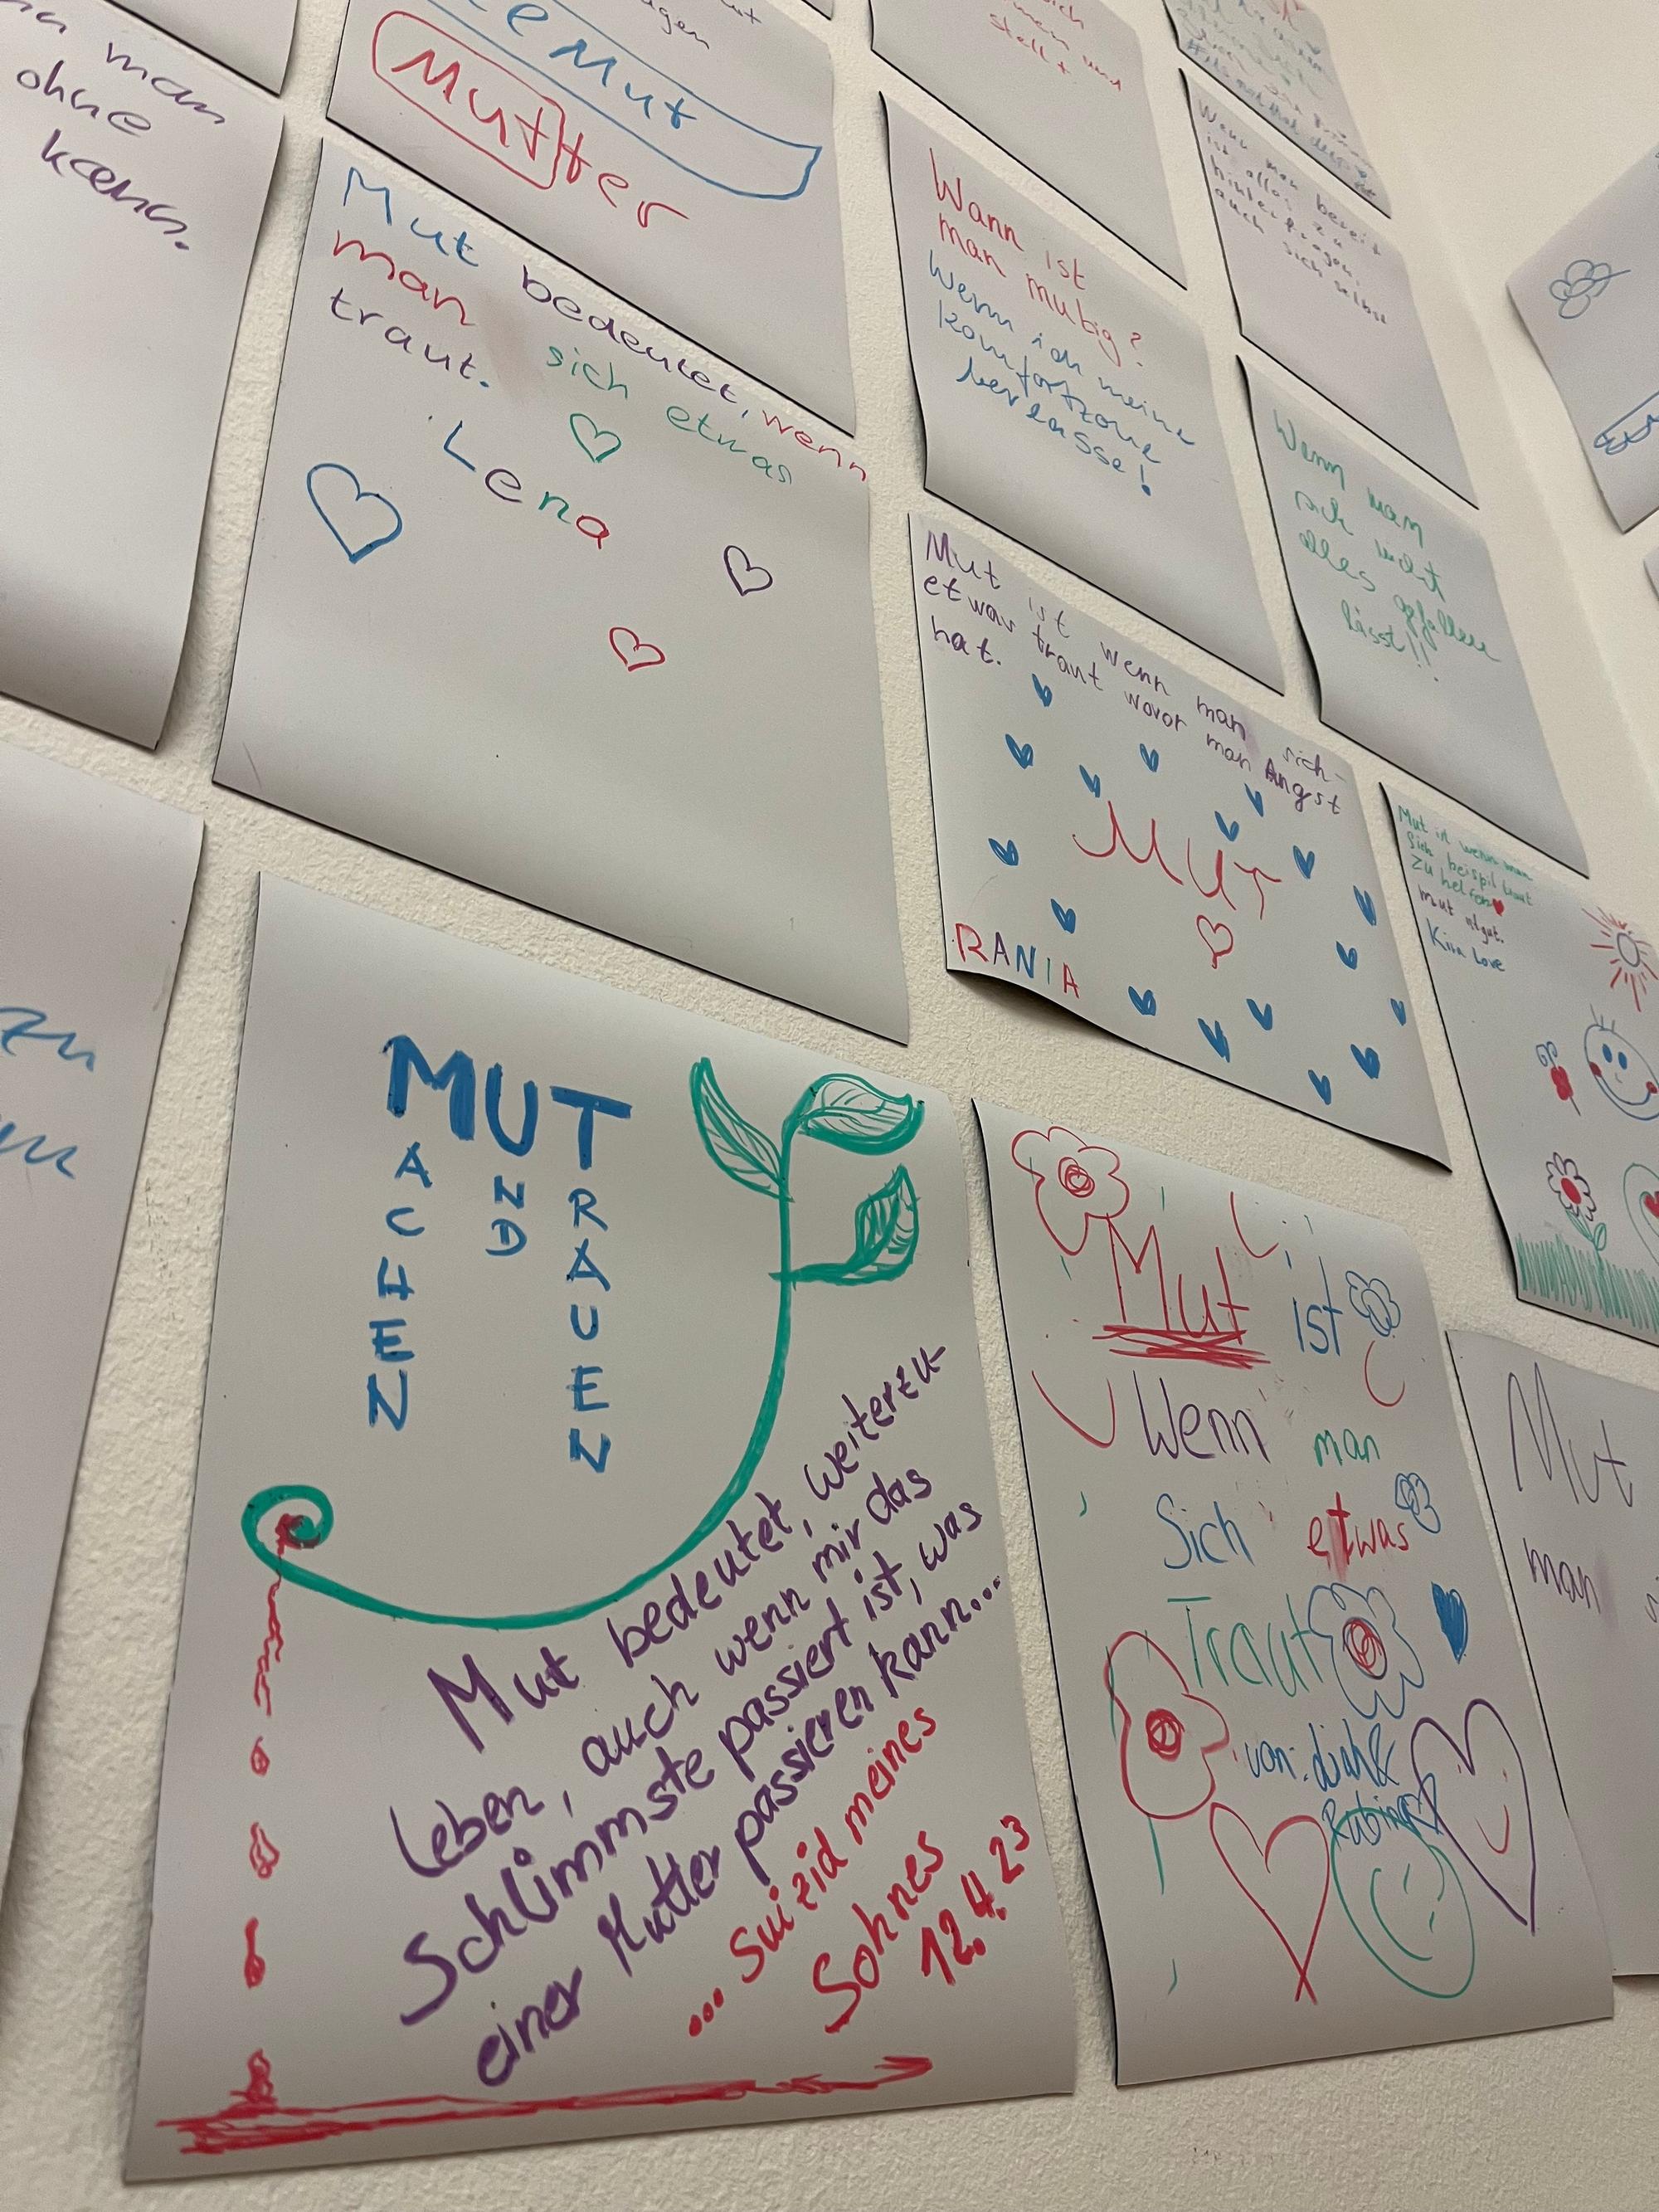 man
ohne
kann.
Mut
Mutter
Mut bedeutet, wenn
man sich etwas
traut.
Lena
Wann ist
man mutig?
Wenn ich meine
Komfortzone
verlasse!
Wenn man bereit
ist alles zu
hinterfragen,
auch sich selbst
Wenn man
sich nicht
alles gefallen
lässt!!
Mut ist wenn man sich
etwas traut wovor man Angst
hat.
MUT
RANIA
Mut ist wenn man
sich beispil traut
zu helfen
mut
Kira Love
zu
MUT
MACHEN
UND
TRAUEN
Mut bedeutet, weiterzu-
leben, auch wenn mir das
Schlimmste passiert ist, was
einer Mutter passieren kann...
... Suizid meines
Sohnes
12.4.23
Mut ist
Wenn man
Sich etwas
Traut
von:
Mut
man